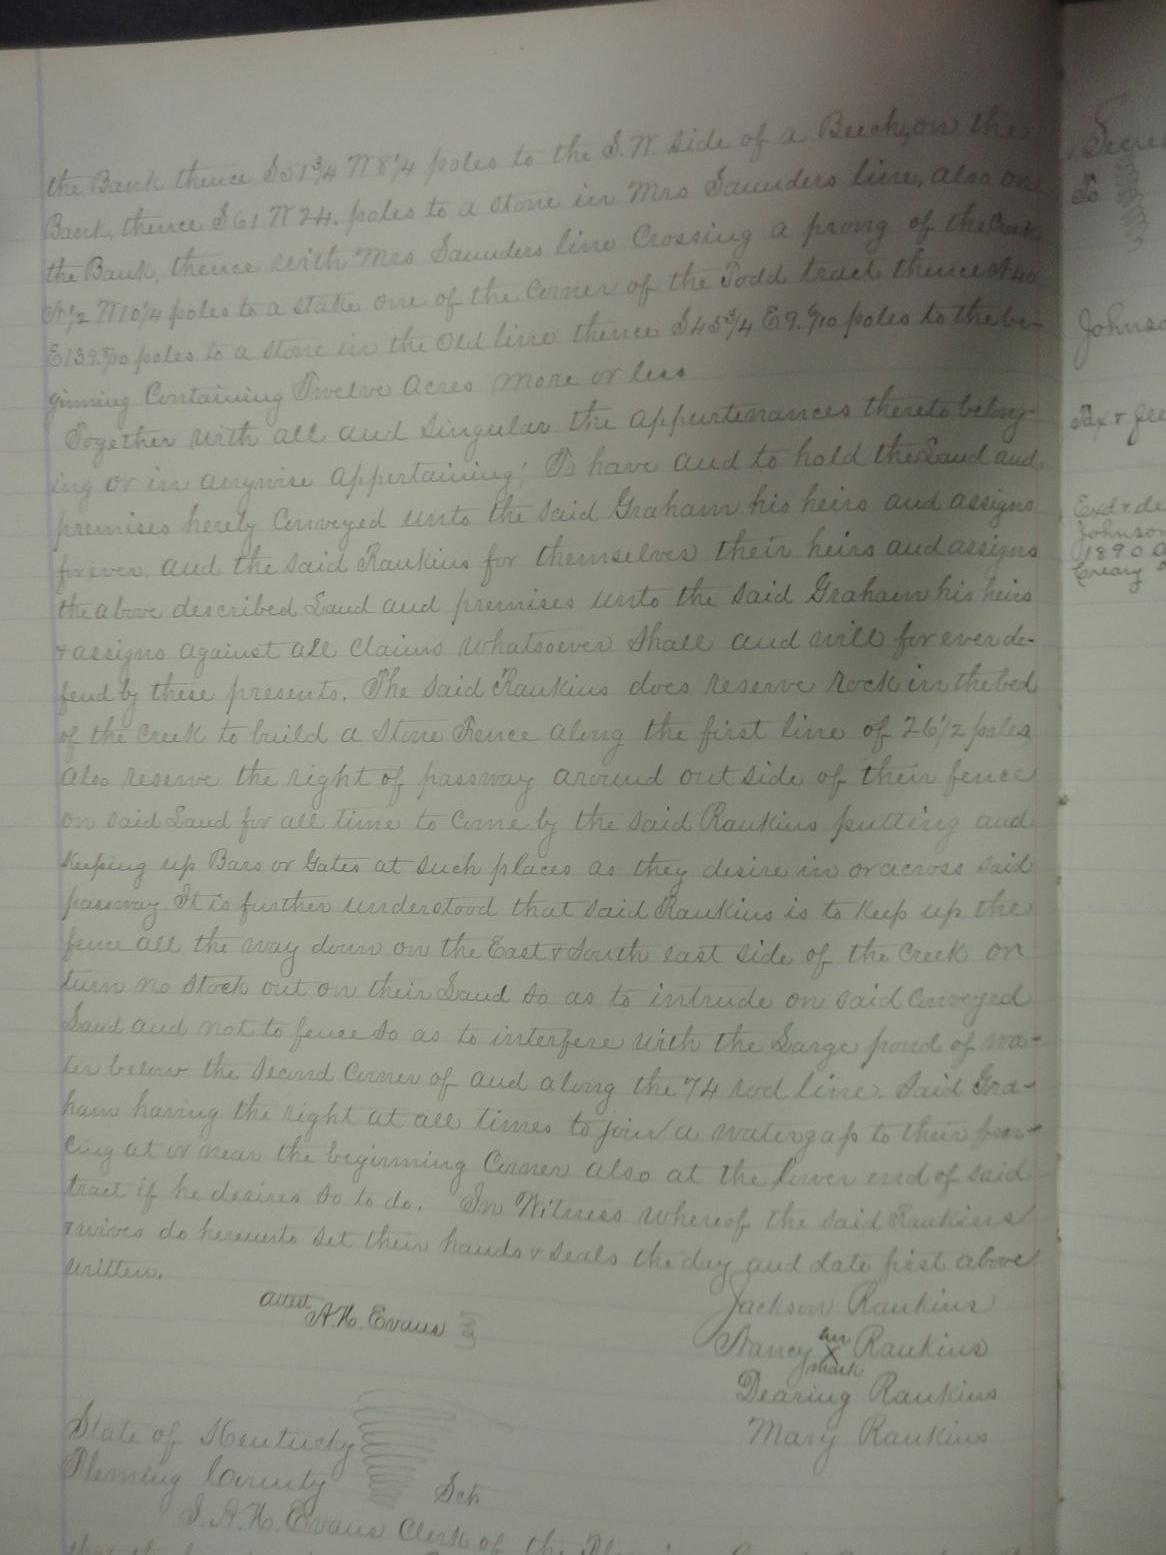 the Bank thence S51 3/4 W 8 1/4 poles to the S.W. side of a Beech, on the
Bank, thence S61 W 24. poles to a stone in Mrs Saunders line, also on
the Bank, thence with Mrs Saunders line Crossing a prong of the Creek
N 1/2 W 10 1/4 poles to a stake one of the Corner of the Todd tract thence N 40
poles to a stone in the Old line thence S 45 3/4 E 9. 9/10 poles to the be-
ginning Containing Twelve Acres more or less
Together with all and singular the appurtenances thereto belong-
ing or in anywise appertaining; To have and to hold the Land and
premises hereby Conveyed unto the said Graham his heirs and assigns
forever. and the said Rankins for themselves their heirs and assigns
the above described Land and premises unto the said Graham his heirs
& assigns against all Claims whatsoever shall and will forever de-
fend by these presents. The said Rankins does reserve rock in the bed
of the Creek to build a Stone Fence along the first line of 26 1/2 poles
also reserve the right of passway around out side of their fence
on said Land for all time to Come by the said Rankins putting and
Keeping up Bars or Gates at such places as they desire in or across said
passway. It is further understood that said Rankins is to Keep up the
fence all the way down on the East & South east side of the Creek or
turn no stock out on their Land so as to intrude on said Conveyed
Land and not to fence so as to interfere with the Large pond of wa-
ter below the second Corner of and along the 74 rod line. Said Gra-
ham having the right at all times to join a watergap to their fen-
cing at or near the beginning Corner also at the lower end of said
tract if he desires so to do. In Witness whereof the said Rankins
& wives do hereunto set their hands & seals the day and date first above
written.
Jackson Rankins
attest A.H. Evans
Nancy her X mark Rankins
Dearing Rankins
Mary Rankins
State of Kentucky
Fleming County Sct
I. A.H. Evans Clerk of the
Johnso
Tax & fee
Exd & de
Johnson
1890
Creary